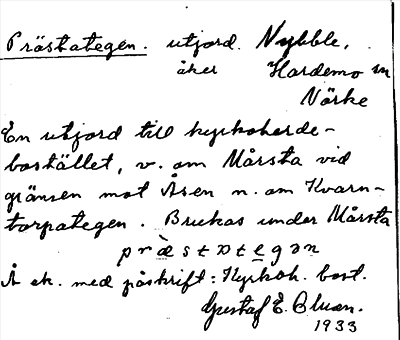 Prästategen. utjord. Nybble,
åker Hardemo sn
Närke
En utjord till kyrkoherde-
bostället, v. om Mårsta vid
gränsen mot Åsen n. om Kvarn-
torpategen. Brukas under Mårsta
præ̀stategən
Å ek. med påskrift: Kyrkoh. bost.
Gustaf E. Bluan.
1933